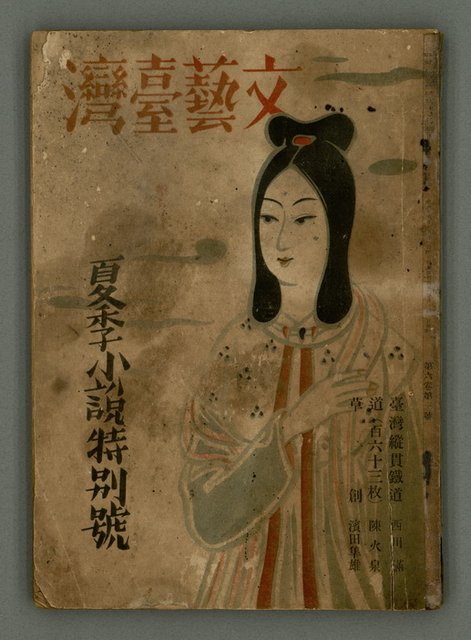 文藝臺灣
夏季小說特別號
臺灣縱貫鐵道 西川滿
道(百六十三枚) 陳火泉
草創 濱田隼雄